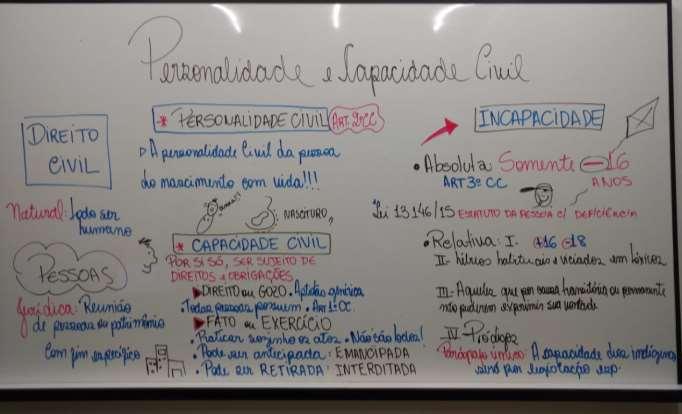 Personalidade e Capacidade Civil
DIREITO
CIVIL
Natural: todo ser
humano
PESSOAS
Jurídica: Reunião
de pessoas ou patrimônio
Com fim específico
* PERSONALIDADE CIVIL ART. 2º CC
A personalidade Civil da pessoa
do nascimento com vida!!!
NASCITURO
* CAPACIDADE CIVIL
POR SI SÓ, SER SUJEITO DE
DIREITOS e OBRIGAÇÕES
DIREITO ou GOZO • Aptidão genérica
• Todas pessoas possuem • Art 1º CC.
FATO ou EXERCÍCIO
• Praticar sozinho os atos • Não são todos!
• Pode ser antecipada: EMANCIPADA
• Pode ser RETIRADA: INTERDITADA
INCAPACIDADE
• Absoluta: Somente -16
ART 3º CC ANOS
Lei 13.146/15 ESTATUTO DA PESSOA C/ DEFICIÊNCIA
• Relativa: I. +16 -18
II- ébrios habituais e viciados em tóxicos
III- Aqueles que por causa transitória ou permanente
não puderem exprimir sua vontade
IV- Pródigos
Parágrafo único: A capacidade dos indígenas
será por legislação esp.